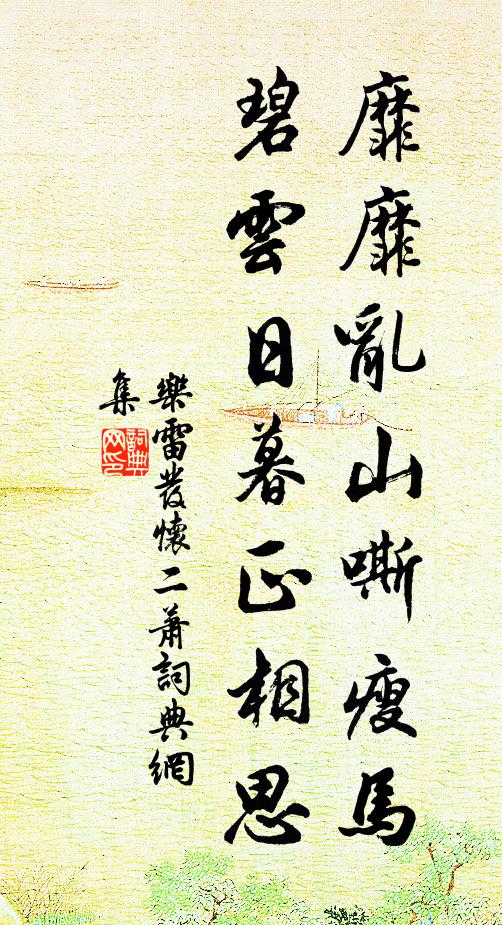 靡靡亂山嘶瘦馬
碧雲日暮正相思
樂雷發懷二蕭詞典網
集
詞典
网印